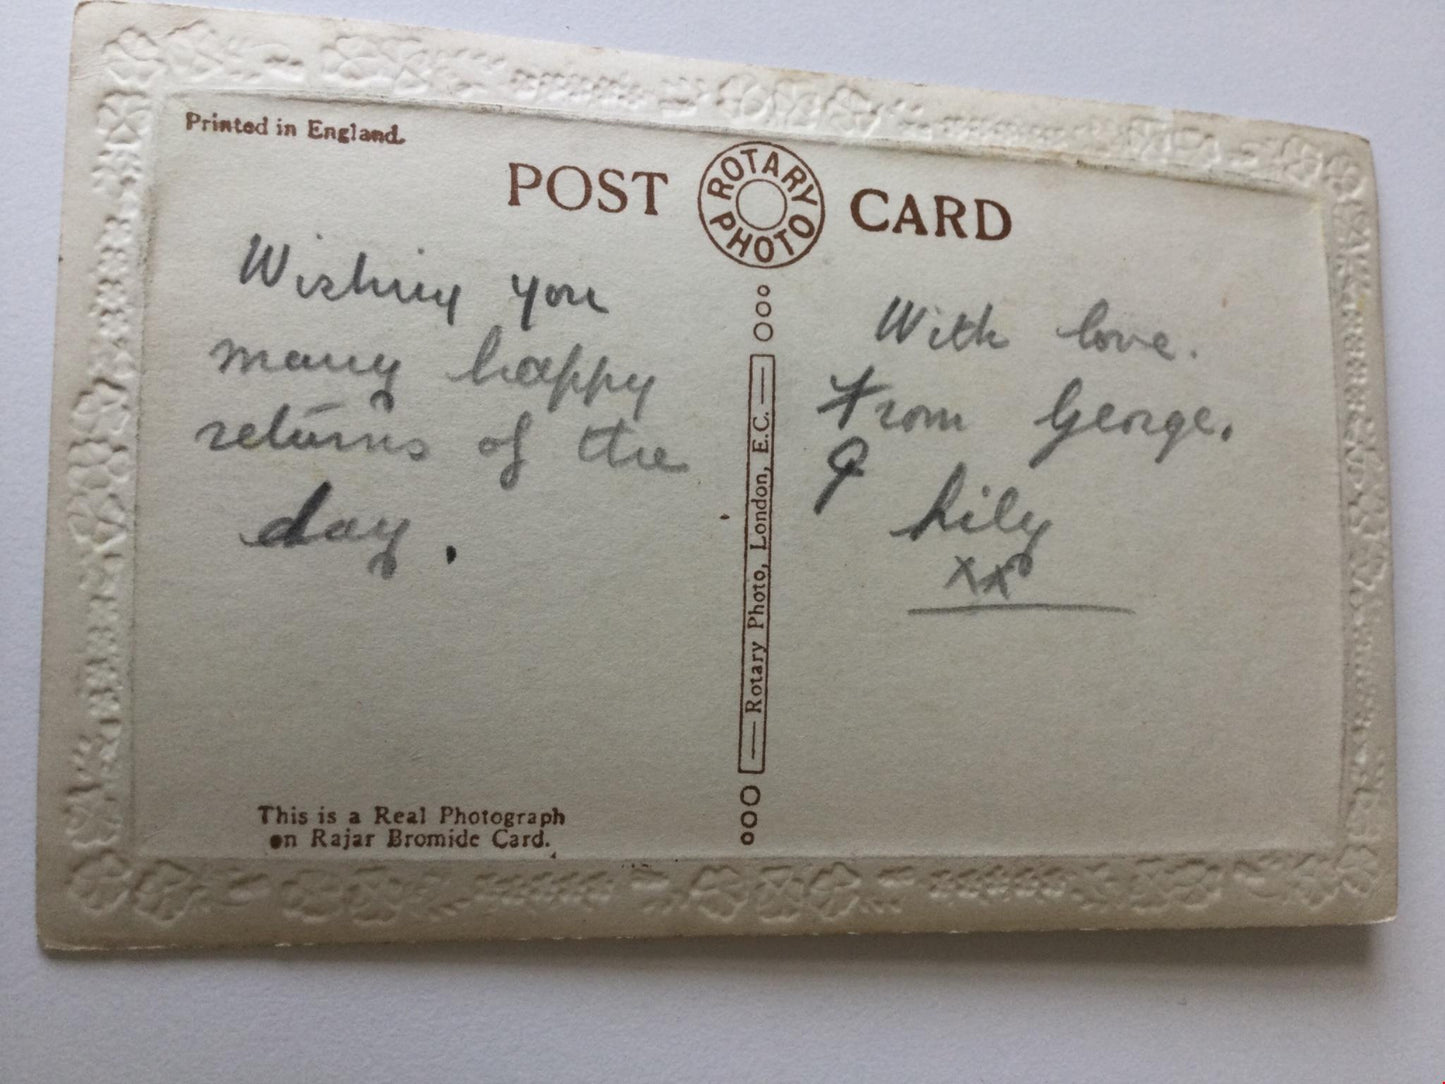 Printed in England.
POST CARD
ROTARY PHOTO
Wishing you
many happy
returns of the
day.
With love.
From George.
&
Lily
xx
Rotary Photo, London, E.C.
This is a Real Photograph
on Rajar Bromide Card.